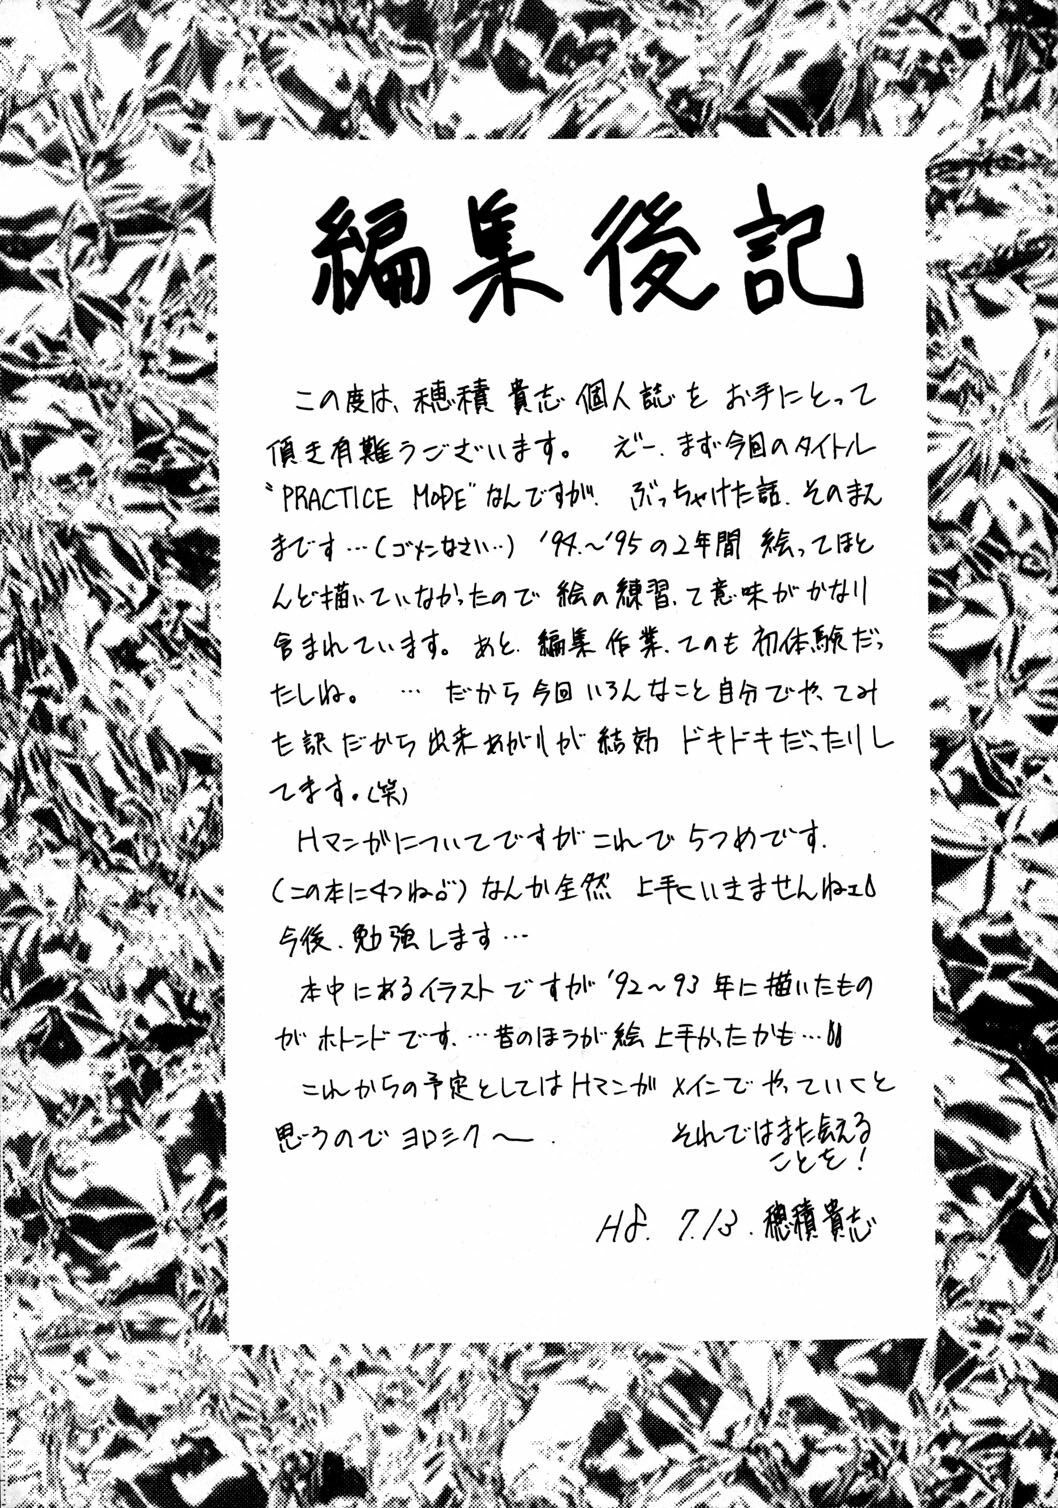 編集後記
この度は、穂積貴志個人誌をお手にとって
頂き有難うございます。 えー、まず今回のタイトル
"PRACTICE MODE"なんですが、ぶっちゃけた話、そのまん
まです…(ゴメンなさい…) '94.〜'95の2年間 絵ってほと
んど描いていなかったので絵の練習って意味がかなり
含まれています。あと、編集作業ってのも初体験だっ
たしね。 … だから今回いろんなこと自分でやってみ
た訳だから出来あがりが結効 ドキドキだったりし
てます。(笑)
Hマンガについてですがこれで5つめです.
(この本に4つねっ) なんか全然 上手くいきませんねェ
今後、勉強します…
本中にあるイラストですが'92〜93年に描いたもの
がホトンドです.…昔のほうが絵上手かったかも…
これからの予定としてはHマンガメインでやっていくと
思うのでヨロシク〜.
それではまた会える
ことを!
H8. 7.13. 穂積貴志